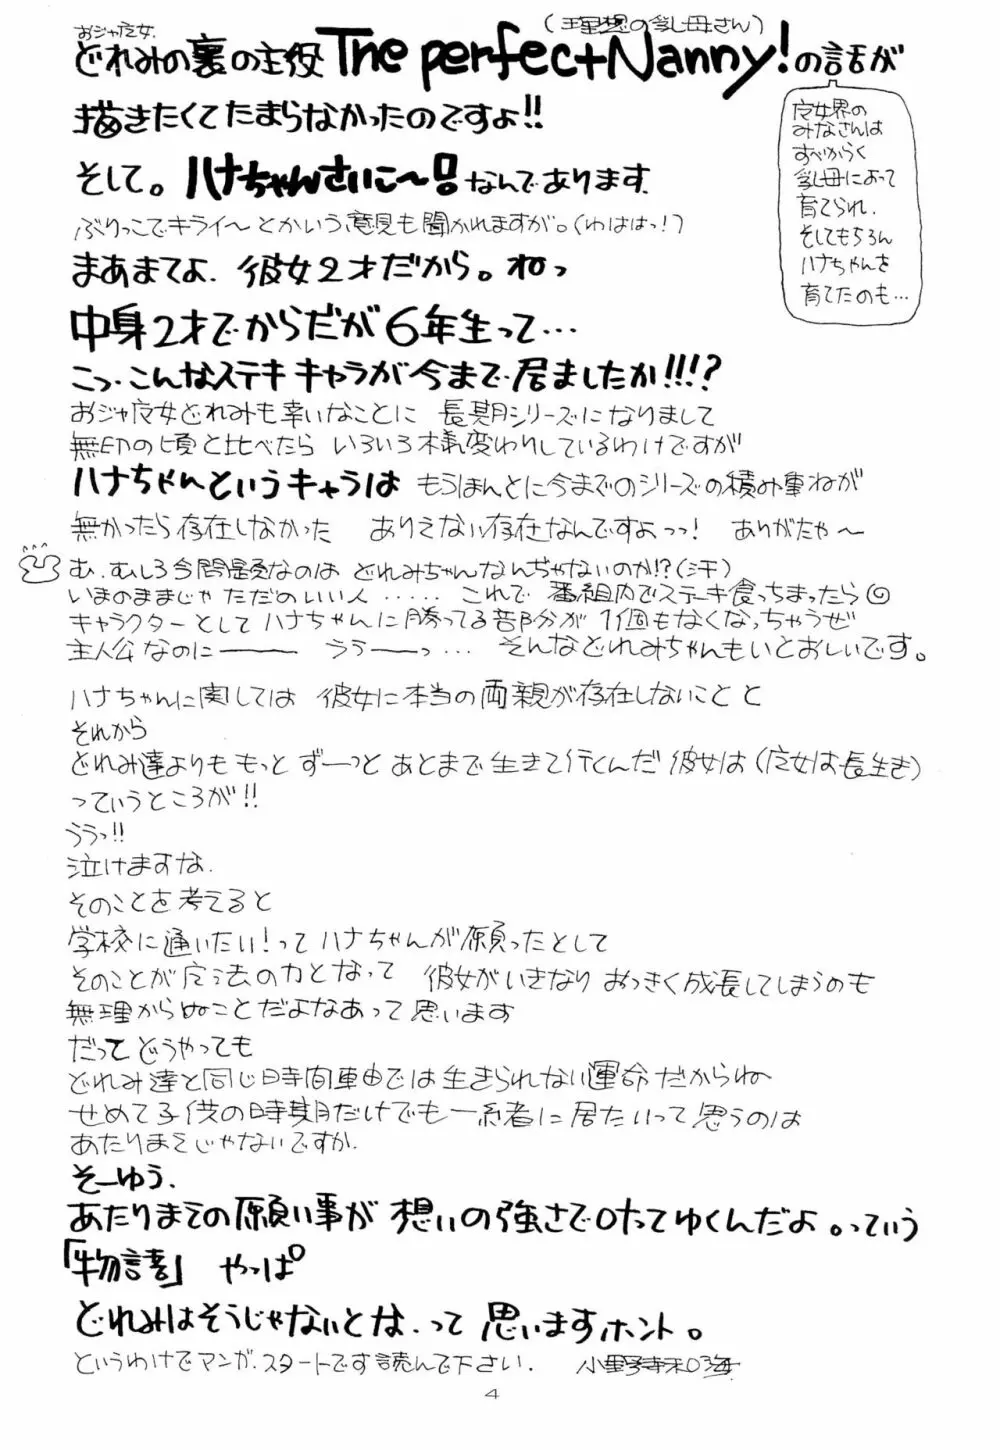 おジャ魔女
どれみの裏の主役The perfect Nanny!の話が
(理想の乳母さん)
描きたくてたまらなかったのですよ!!
そして。ハナちゃんさいこ〜!!なんであります.
ぶりっこでキライ〜とかいう意見も聞かれますが。(わははっ!)
まあまてよ.彼女2才だから。ねっ
中身2才でからだが6年生って…
こっ.こんなステキキャラが今まで居ましたか!!!?
魔女界の
みなさんは
すべからく
乳母によって
育てられ.
そしてもちろん
ハナちゃんを
育てたのも…
おジャ魔女どれみも幸いなことに 長期シリーズになりまして
無印の頃と比べたら いろいろ様変わりしているわけですが
ハナちゃんというキャラは もうほんとに今までのシリーズの積み重ねが
無かったら存在しなかった ありえない存在なんですよっっ! ありがたや〜
む.むしろ今問題なのは どれみちゃんなんぢゃないのか!?(汗)
いまのままじゃ ただのいい人…… これで 番組内でステーキ食っちまったら
キャラクターとしてハナちゃんに勝ってる部分が 1個もなくなっちゃうぜ
主人公なのに――― ううーっ… そんなどれみちゃんもいとおしいです。
ハナちゃんに関しては 彼女に本当の両親が存在しないことと
それから
どれみ達よりももっと ずーっと あとまで生きて行くんだ彼女は(魔女は長生き)
っていうところが!!
ううっ!!
泣けますな.
そのことを考えると
学校に通いたい!ってハナちゃんが願ったとして
そのことが魔法の力となって 彼女がいきなり おっきく成長してしまうのも
無理からぬことだよなあって思います
だって どうやっても
どれみ達と同じ時間軸では生きられない運命だからね
せめて子供の時期だけでも一緒に居たいって思うのは
あたりまえじゃないですか.
そーゆう.
あたりまえの願い事が 想いの強さで叶ってゆくんだよ。っていう
「物語」 やっぱ
どれみはそうじゃないとな.って 思いますホント。
というわけでマンガ.スタートです読んで下さい. 小野寺和海
4